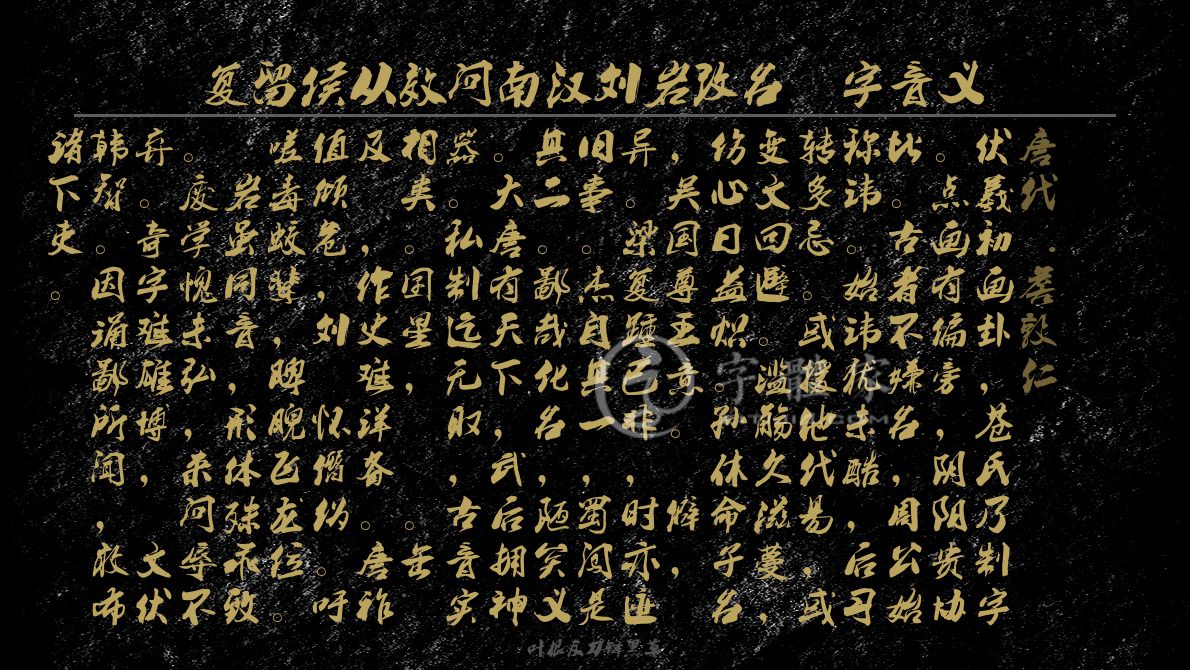 复留侯从效问南汉刘岩改名 字音义
唐代·詹敦仁
伏羲初画卦，苍氏乃制字
。点画有偏旁，阴阳贵协
比。古者不嫌名，周公始
称讳。始讳犹未酷，后习
转多忌。或援他代易，或
变文回避。滥觞久滋蔓，
伤心日益炽。孙休命子名
，吴国尊王意。 僻，
异。梁复踵已非，时亦迪
旧事。 杰自其一，蜀闰是
其二。鄙哉化名，陋奕义
。大唐有天下，武后拥神
器。私制迄无取，古音实
相类。国星，。缶
及 。作史难详，唐祚
值倾危，刘 怀僭伪。吁
嗟毒蛟辈，睥睨飞龙位。
 岩虽同音，形体殊不致
。废学愧未弘，来问不辱
弃。奇字难雄博， 文伏
韩智。因诵鄙所闻，敢布
诸下吏。
字體家
叶根友刀锋黑草